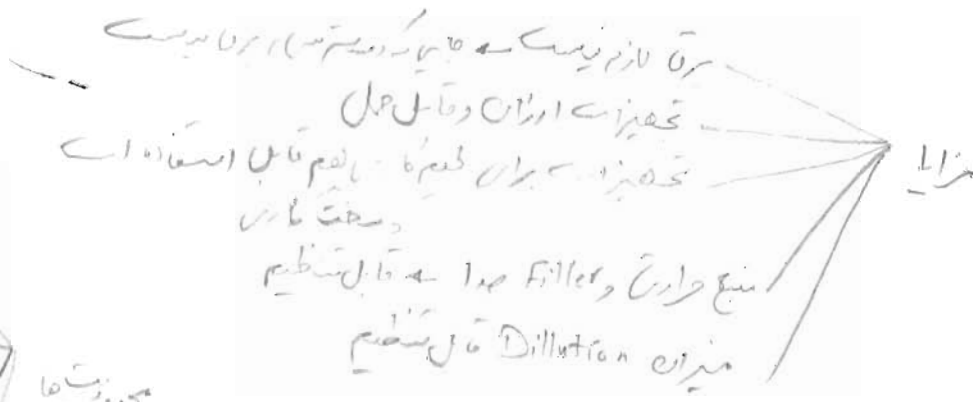 مزایا
برق لازم نیست ← جایی که دسترسی برق نیست
تجهیزات ارزان و قابل حمل
تجهیزات برای لحیم‌کاری هم قابل استفاده است
و سخت کاری
منبع حرارت و Filler جدا ← قابل تنظیم
میزان Dillution قابل تنظیم
محدودیت‌ها